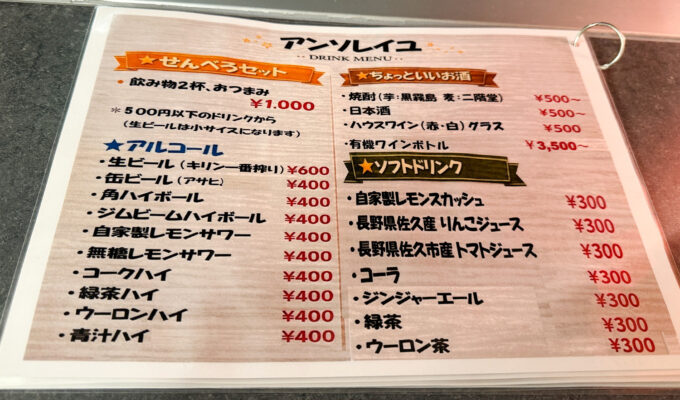 アンソレイユ
DRINK MENU
★せんべろセット
・飲み物2杯、おつまみ
¥1.000
＊500円以下のドリンクから
（生ビールは小サイズになります）
★アルコール
・生ビール（キリン一番搾り）¥600
・缶ビール（アサヒ） ¥400
・角ハイボール ¥400
・ジムビームハイボール ¥400
・自家製レモンサワー ¥400
・無糖レモンサワー ¥400
・コークハイ ¥400
・緑茶ハイ ¥400
・ウーロンハイ ¥400
・青汁ハイ ¥400
★ちょっといいお酒
・焼酎（芋：黒霧島 麦：二階堂） ¥500～
・日本酒 ¥500～
・ハウスワイン（赤・白）グラス ¥500
・有機ワインボトル ¥3,500～
★ソフトドリンク
・自家製レモンスカッシュ ¥300
・長野県佐久産 りんごジュース ¥300
・長野県佐久市産 トマトジュース ¥300
・コーラ ¥300
・ジンジャーエール ¥300
・緑茶 ¥300
・ウーロン茶 ¥300